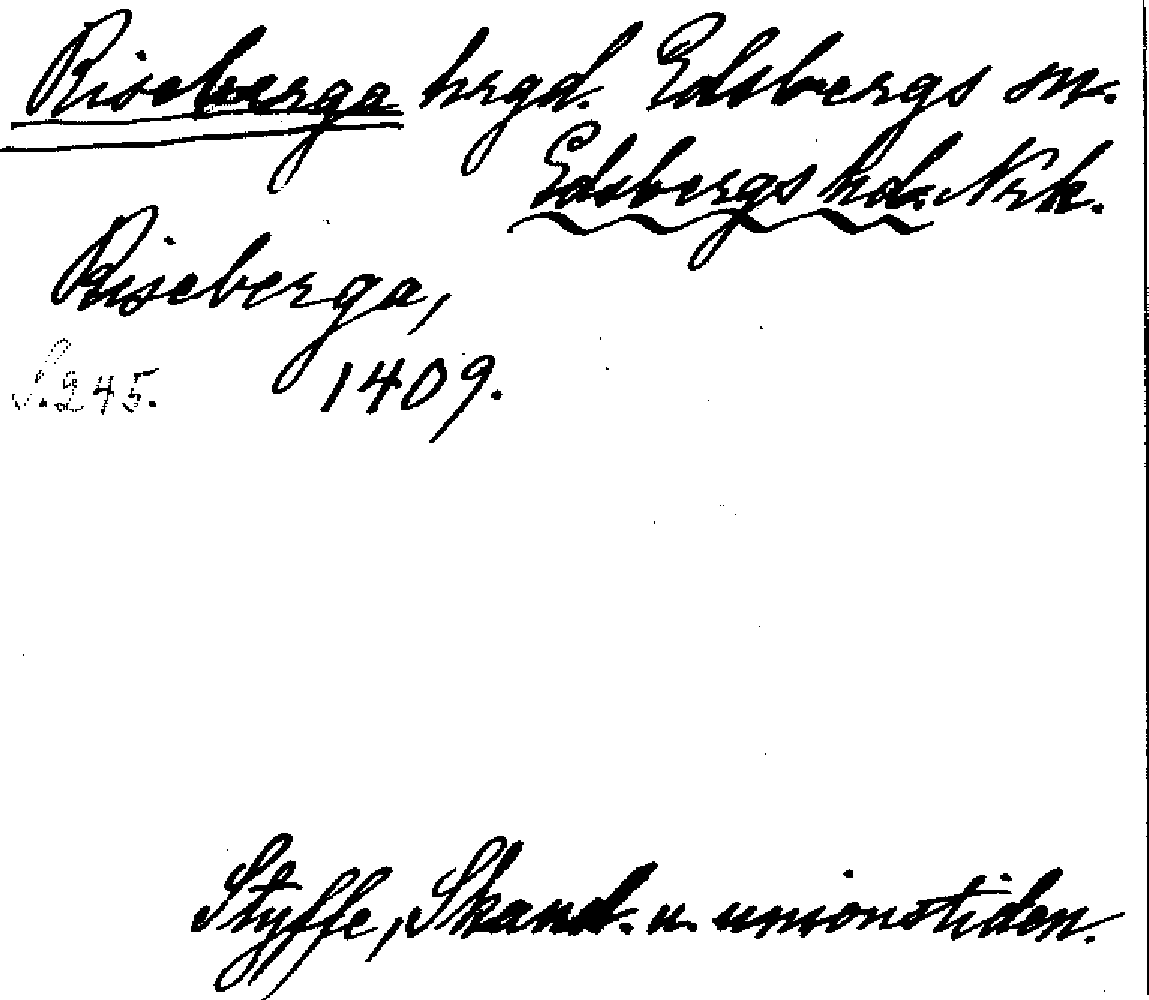 Riseberga hrgd. Edsbergs sn.
Edsbergs hd. Nrk.
Riseberga,
S. 245. 1409.
Styffe, Skand. u. unionstiden.